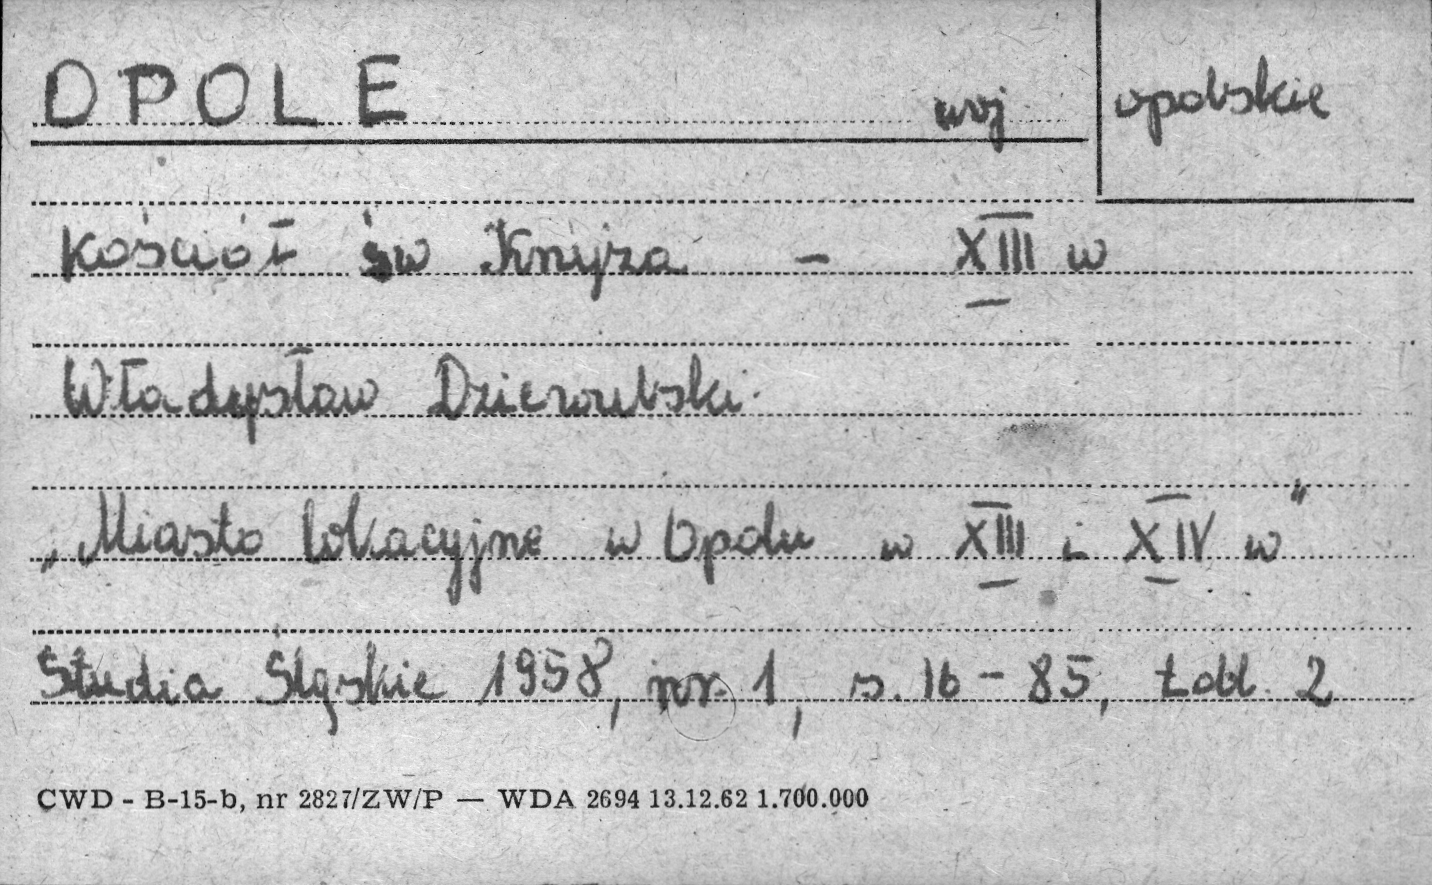 OPOLE woj opolskie
Kościół św Krzyża - XIII w
Władysław Dziewulski
„Miasto lokacyjne w Opolu w XIII i XIV w"
Studia Śląskie 1958, nr. 1, s. 16-85, tabl. 2
CWD - B-15-b, nr 2827/ZW/P — WDA 2694 13.12.62 1.700.000